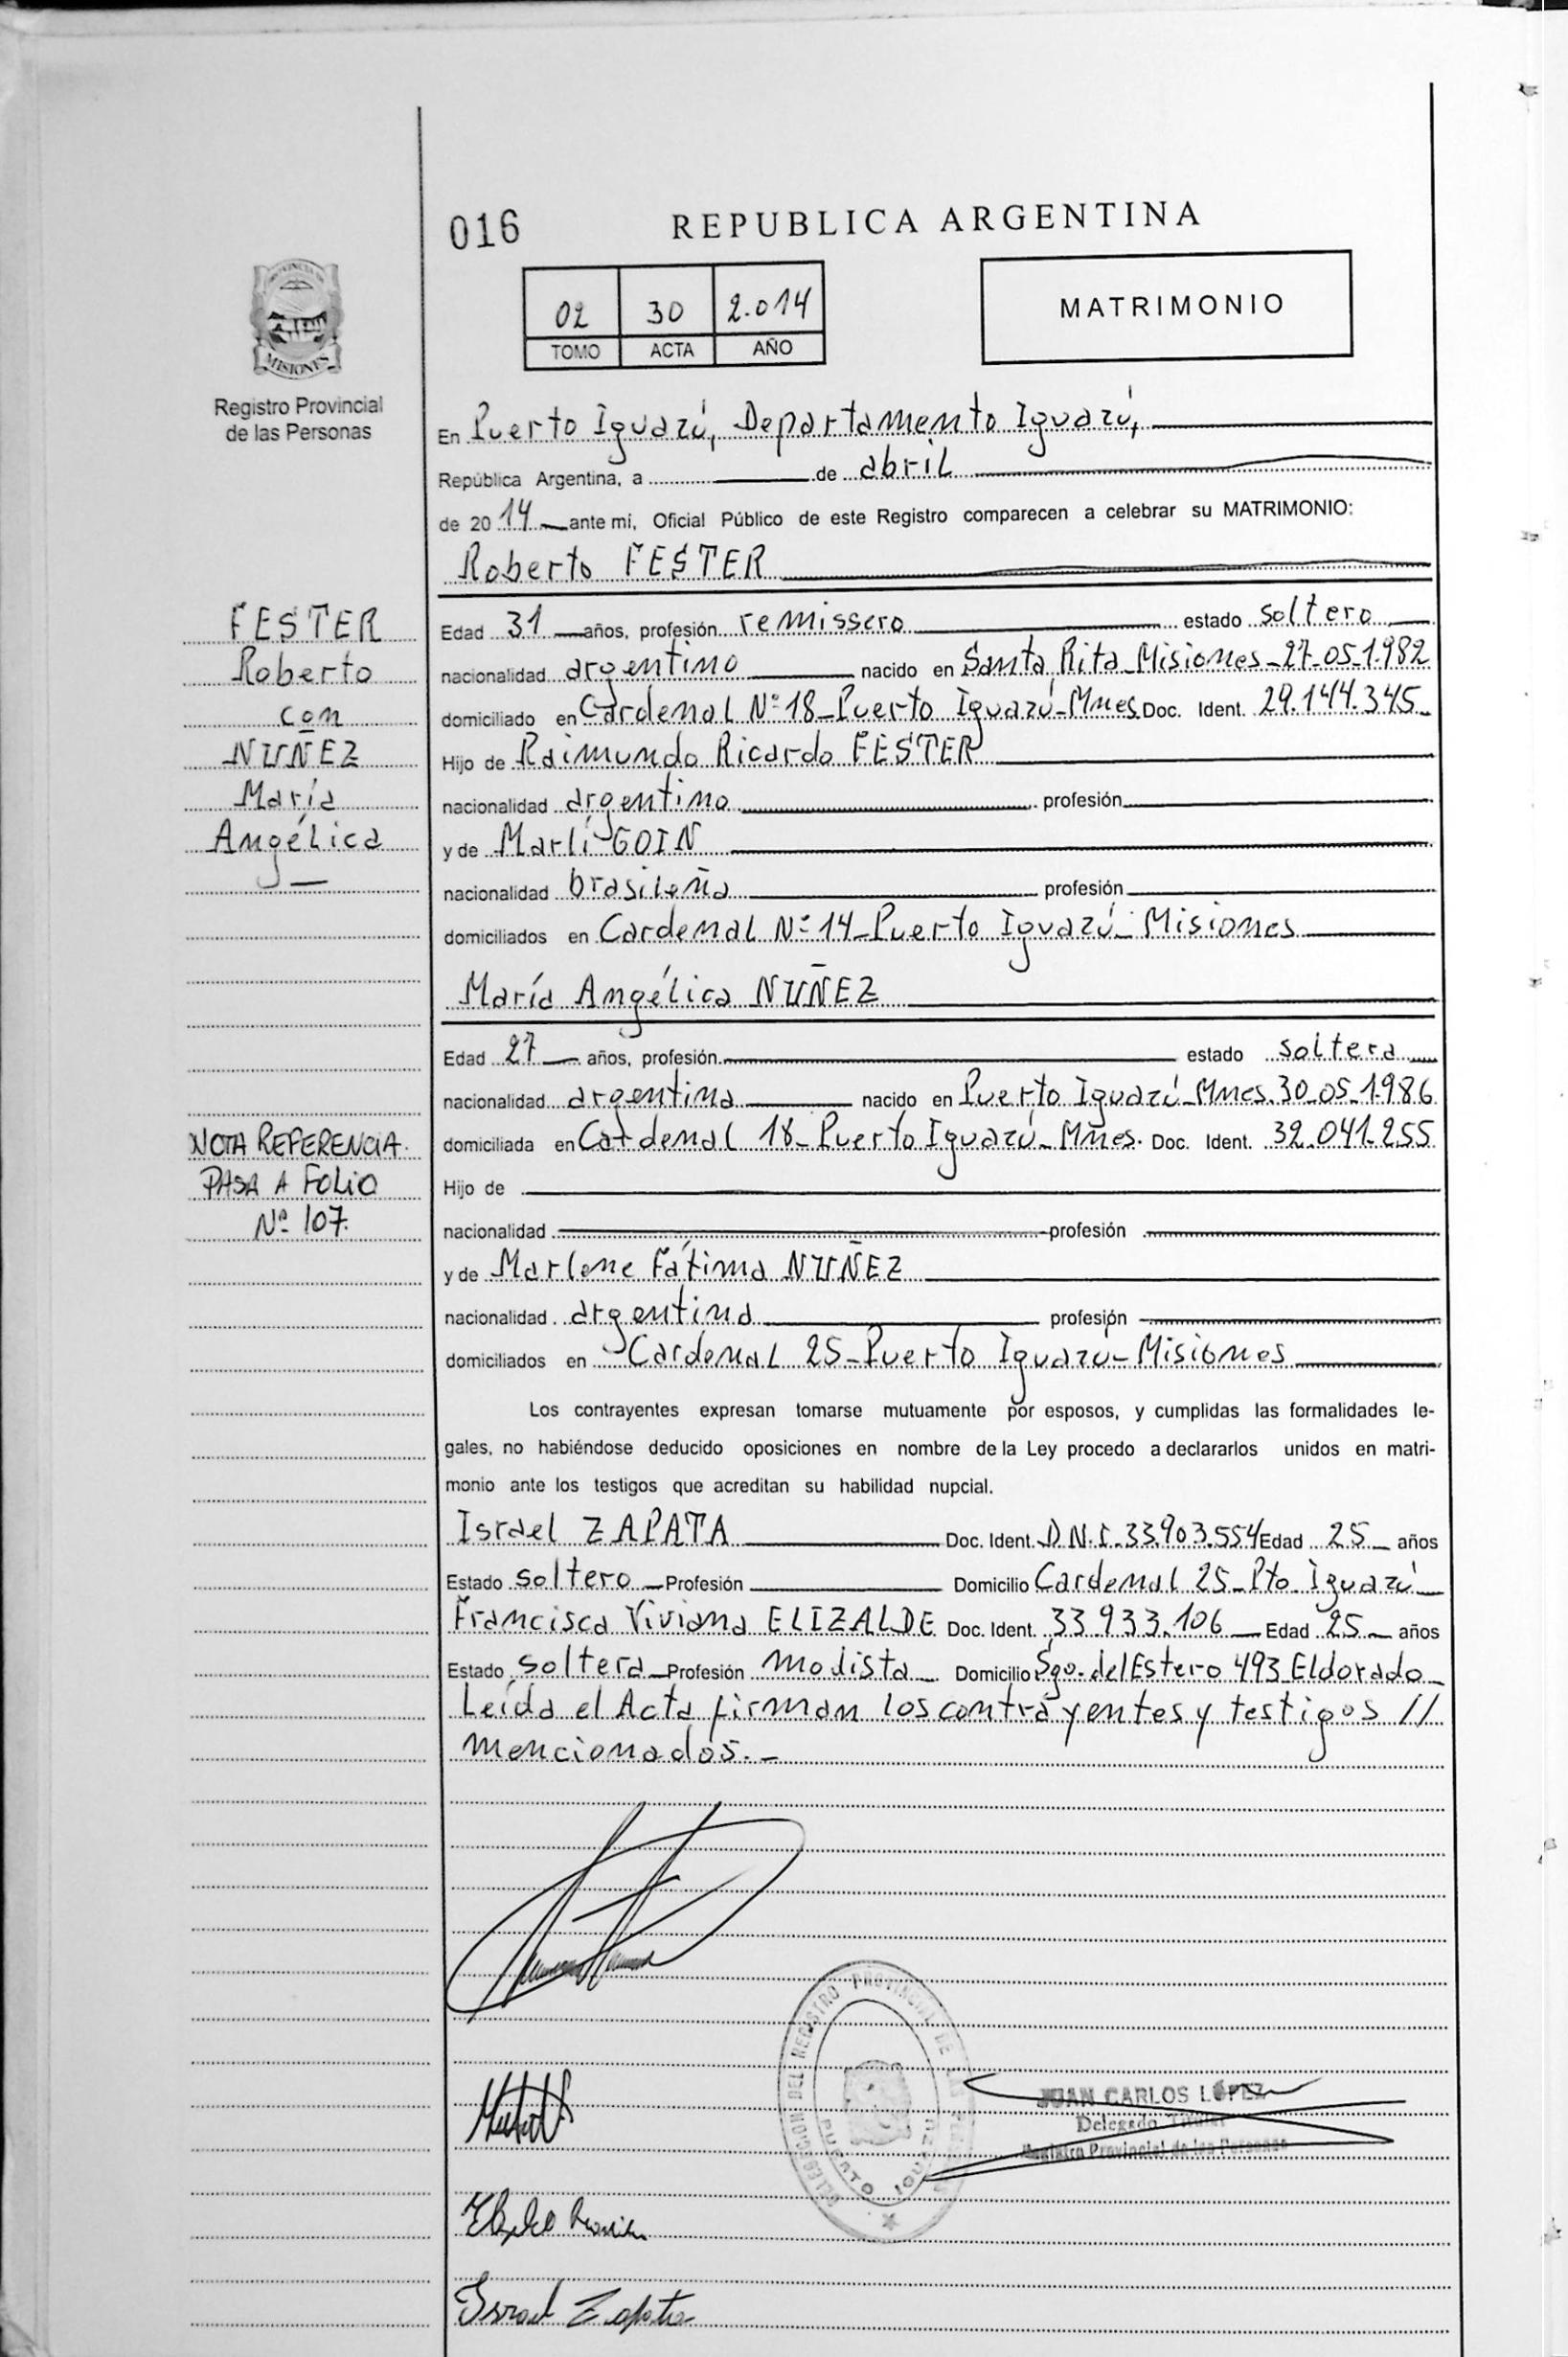 016
REPUBLICA ARGENTINA
02 30 2.014
TOMO ACTA AÑO
MATRIMONIO
MISIONES
Registro Provincial
de las Personas
FESTER
Roberto
con
NUÑEZ
María
Angélica
NOTA REFERENCIA.
PASA A FOLIO
Nº 107.
En Puerto Iguazú, Departamento Iguazú,
República Argentina, a de abril
de 2014 ante mí, Oficial Público de este Registro comparecen a celebrar su MATRIMONIO:
Roberto FESTER
Edad 31 años, profesión remissero estado soltero
nacionalidad argentino nacido en Santa Rita Misiones-27-05-1982
domiciliado en Cardenal Nº 18-Puerto Iguazú-Mnes Doc. Ident. 29.144.345
Hijo de Raimundo Ricardo FESTER
nacionalidad argentino profesión
y de Marlí GOIN
nacionalidad brasileña profesión
domiciliados en Cardenal Nº 14-Puerto Iguazú-Misiones
María Angélica NUÑEZ
Edad 27 años, profesión estado soltera
nacionalidad argentina nacido en Puerto Iguazú-Mnes.30-05-1986
domiciliada en Cardenal 18-Puerto Iguazú-Mnes. Doc. Ident. 32.041.255
Hijo de
nacionalidad profesión
y de Marlene Fátima NUÑEZ
nacionalidad argentina profesión
domiciliados en Cardenal 25-Puerto Iguazú-Misiones
Los contrayentes expresan tomarse mutuamente por esposos, y cumplidas las formalidades le-
gales, no habiéndose deducido oposiciones en nombre de la Ley procedo a declararlos unidos en matri-
monio ante los testigos que acreditan su habilidad nupcial.
Israel ZAPATA Doc. Ident. D.N.I. 33.903.554 Edad 25 años
Estado soltero Profesión Domicilio Cardenal 25-Pto. Iguazú
Francisca Viviana ELIZALDE Doc. Ident. 33.933.106 Edad 25 años
Estado soltera Profesión Modista Domicilio Sgo. del Estero 493 Eldorado
Leída el Acta firman los contrayentes y testigos //
mencionados.-
DELEGACION DEL REGISTRO PROVINCIAL DE LAS PERSONAS
PUERTO IGUAZU
JUAN CARLOS LÓPEZ
Delegado Titular
Registro Provincial de las Personas
Israel Zapata